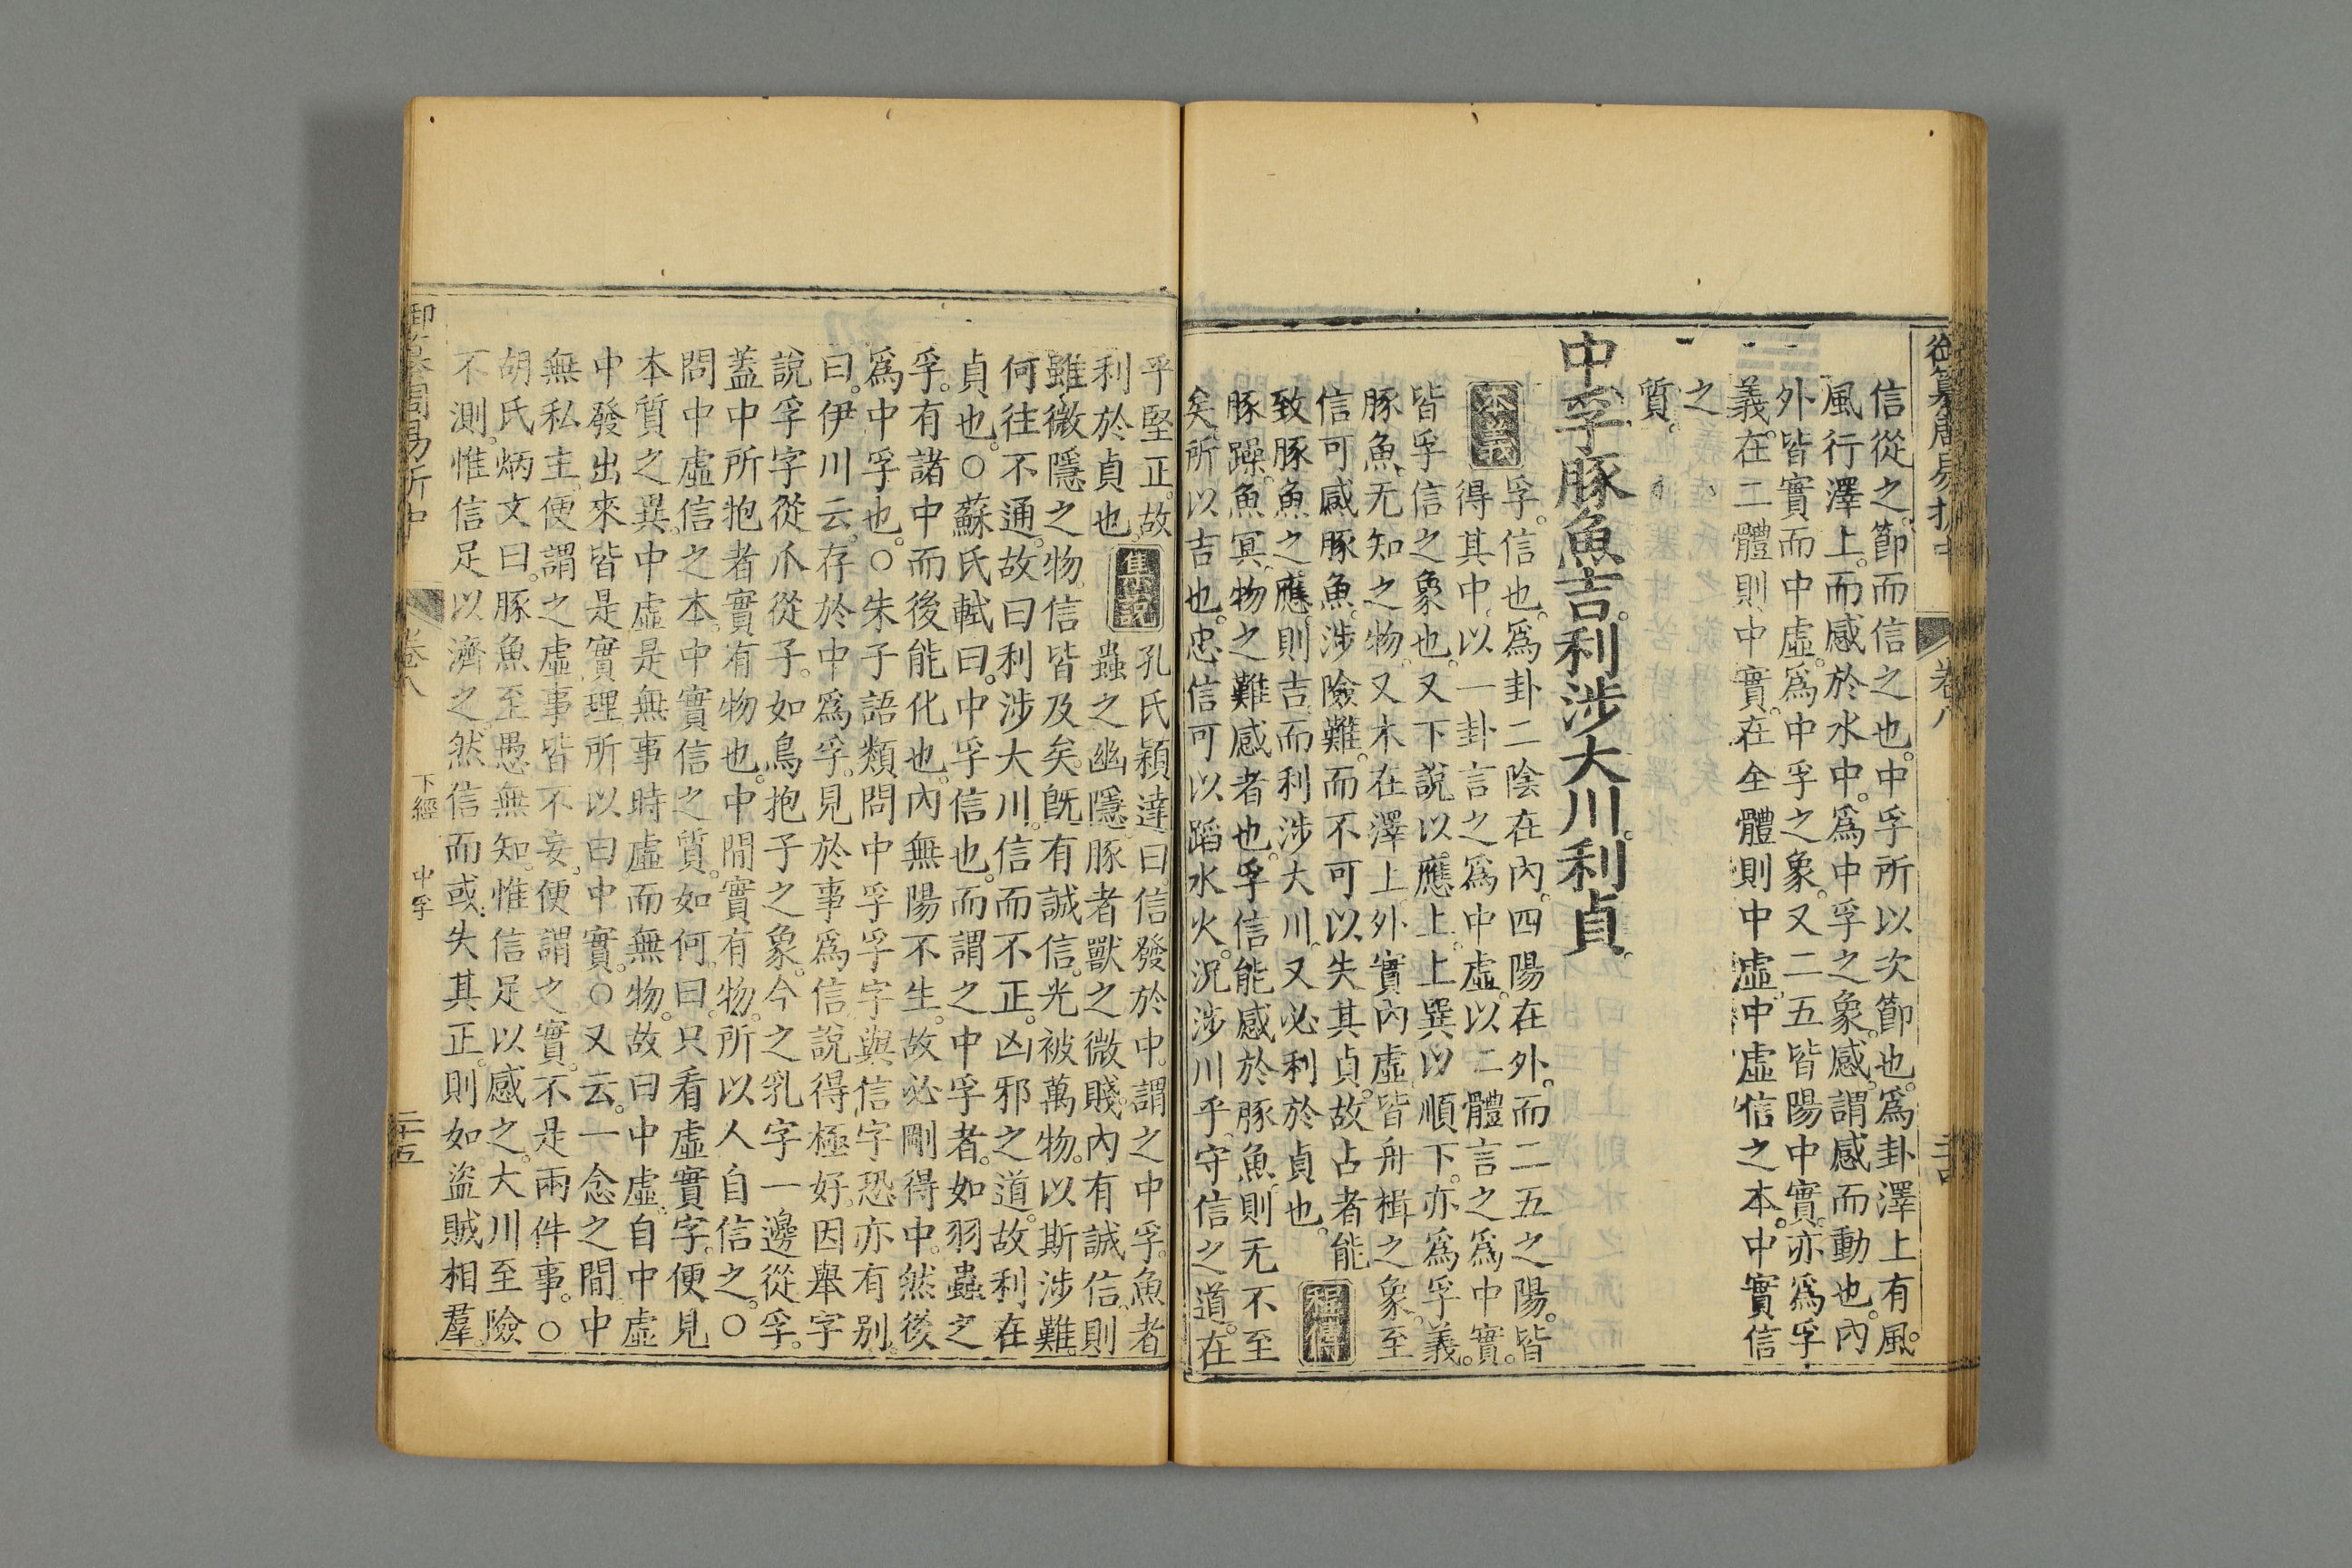 御纂周易折中 卷八
信從之節而信之也。中孚所以次節也。爲卦澤上有風。
風行澤上。而感於水中。爲中孚之象。感。謂感而動也。內
外皆實而中虛。爲中孚之象。又二五皆陽中實。亦爲孚
義。在二體則中實。在全體則中虛。中虛信之本。中實信
之
質。
中孚豚魚吉。利涉大川。利貞。
孚。信也。爲卦二陰在內。四陽在外。而二五之陽。皆
本義
得其中。以一卦言之爲中虛。以二體言之爲中實。
皆孚信之象也。又下說以應上。上巽以順下。亦爲孚義。
豚魚。无知之物。又木在澤上。外實內虛。皆舟楫之象。至
信可感豚魚。涉險難。而不可以失其貞。故占者能
致豚魚之應。則吉而利涉大川。又必利於貞也。
程傳
豚躁。魚冥。物之難感者也。孚信能感於豚魚。則无不至
矣。所以吉也。忠信可以蹈水火。況涉川乎。守信之道。在
乎堅正。故
利於貞也。
集說
孔氏穎達曰信發於中。謂之中孚。魚者
蟲之幽隱。豚者獸之微賤。內有誠信。則
雖微隱之物。信皆及矣。旣有誠信。光被萬物。以斯涉難
何往不通。故曰利涉大川。信而不正。凶邪之道。故利在
貞也。○蘇氏軾曰。中孚信也。而謂之中孚者。如羽蟲之
孚。有諸中而後能化也。內無陽不生。故必剛得中。然後
爲中孚也。○朱子語類問中孚孚字與信字恐亦有別。
曰。伊川云。存於中爲孚。見於事爲信。說得極好。因舉字
說孚字從爪從子。如鳥抱子之象。今之乳字一邊從孚。
蓋中所抱者實有物也。中間實有物。所以人自信之。○
問中虛信之本。中實信之質。如何。曰。只看虛實字。便見
本質之異。中虛是無事時虛而無物。故曰中虛。自中虛
中發出來皆是實理。所以曰中實。○又云。一念之間中
無私主。便謂之虛事皆不妄。便謂之實。不是兩件事。○
胡氏炳文曰。豚魚至愚無知。惟信足以感之。大川至險
不測。惟信足以濟之。然信而或失其正。則如盜賊相羣。
卷八 下經 中孚 二十五